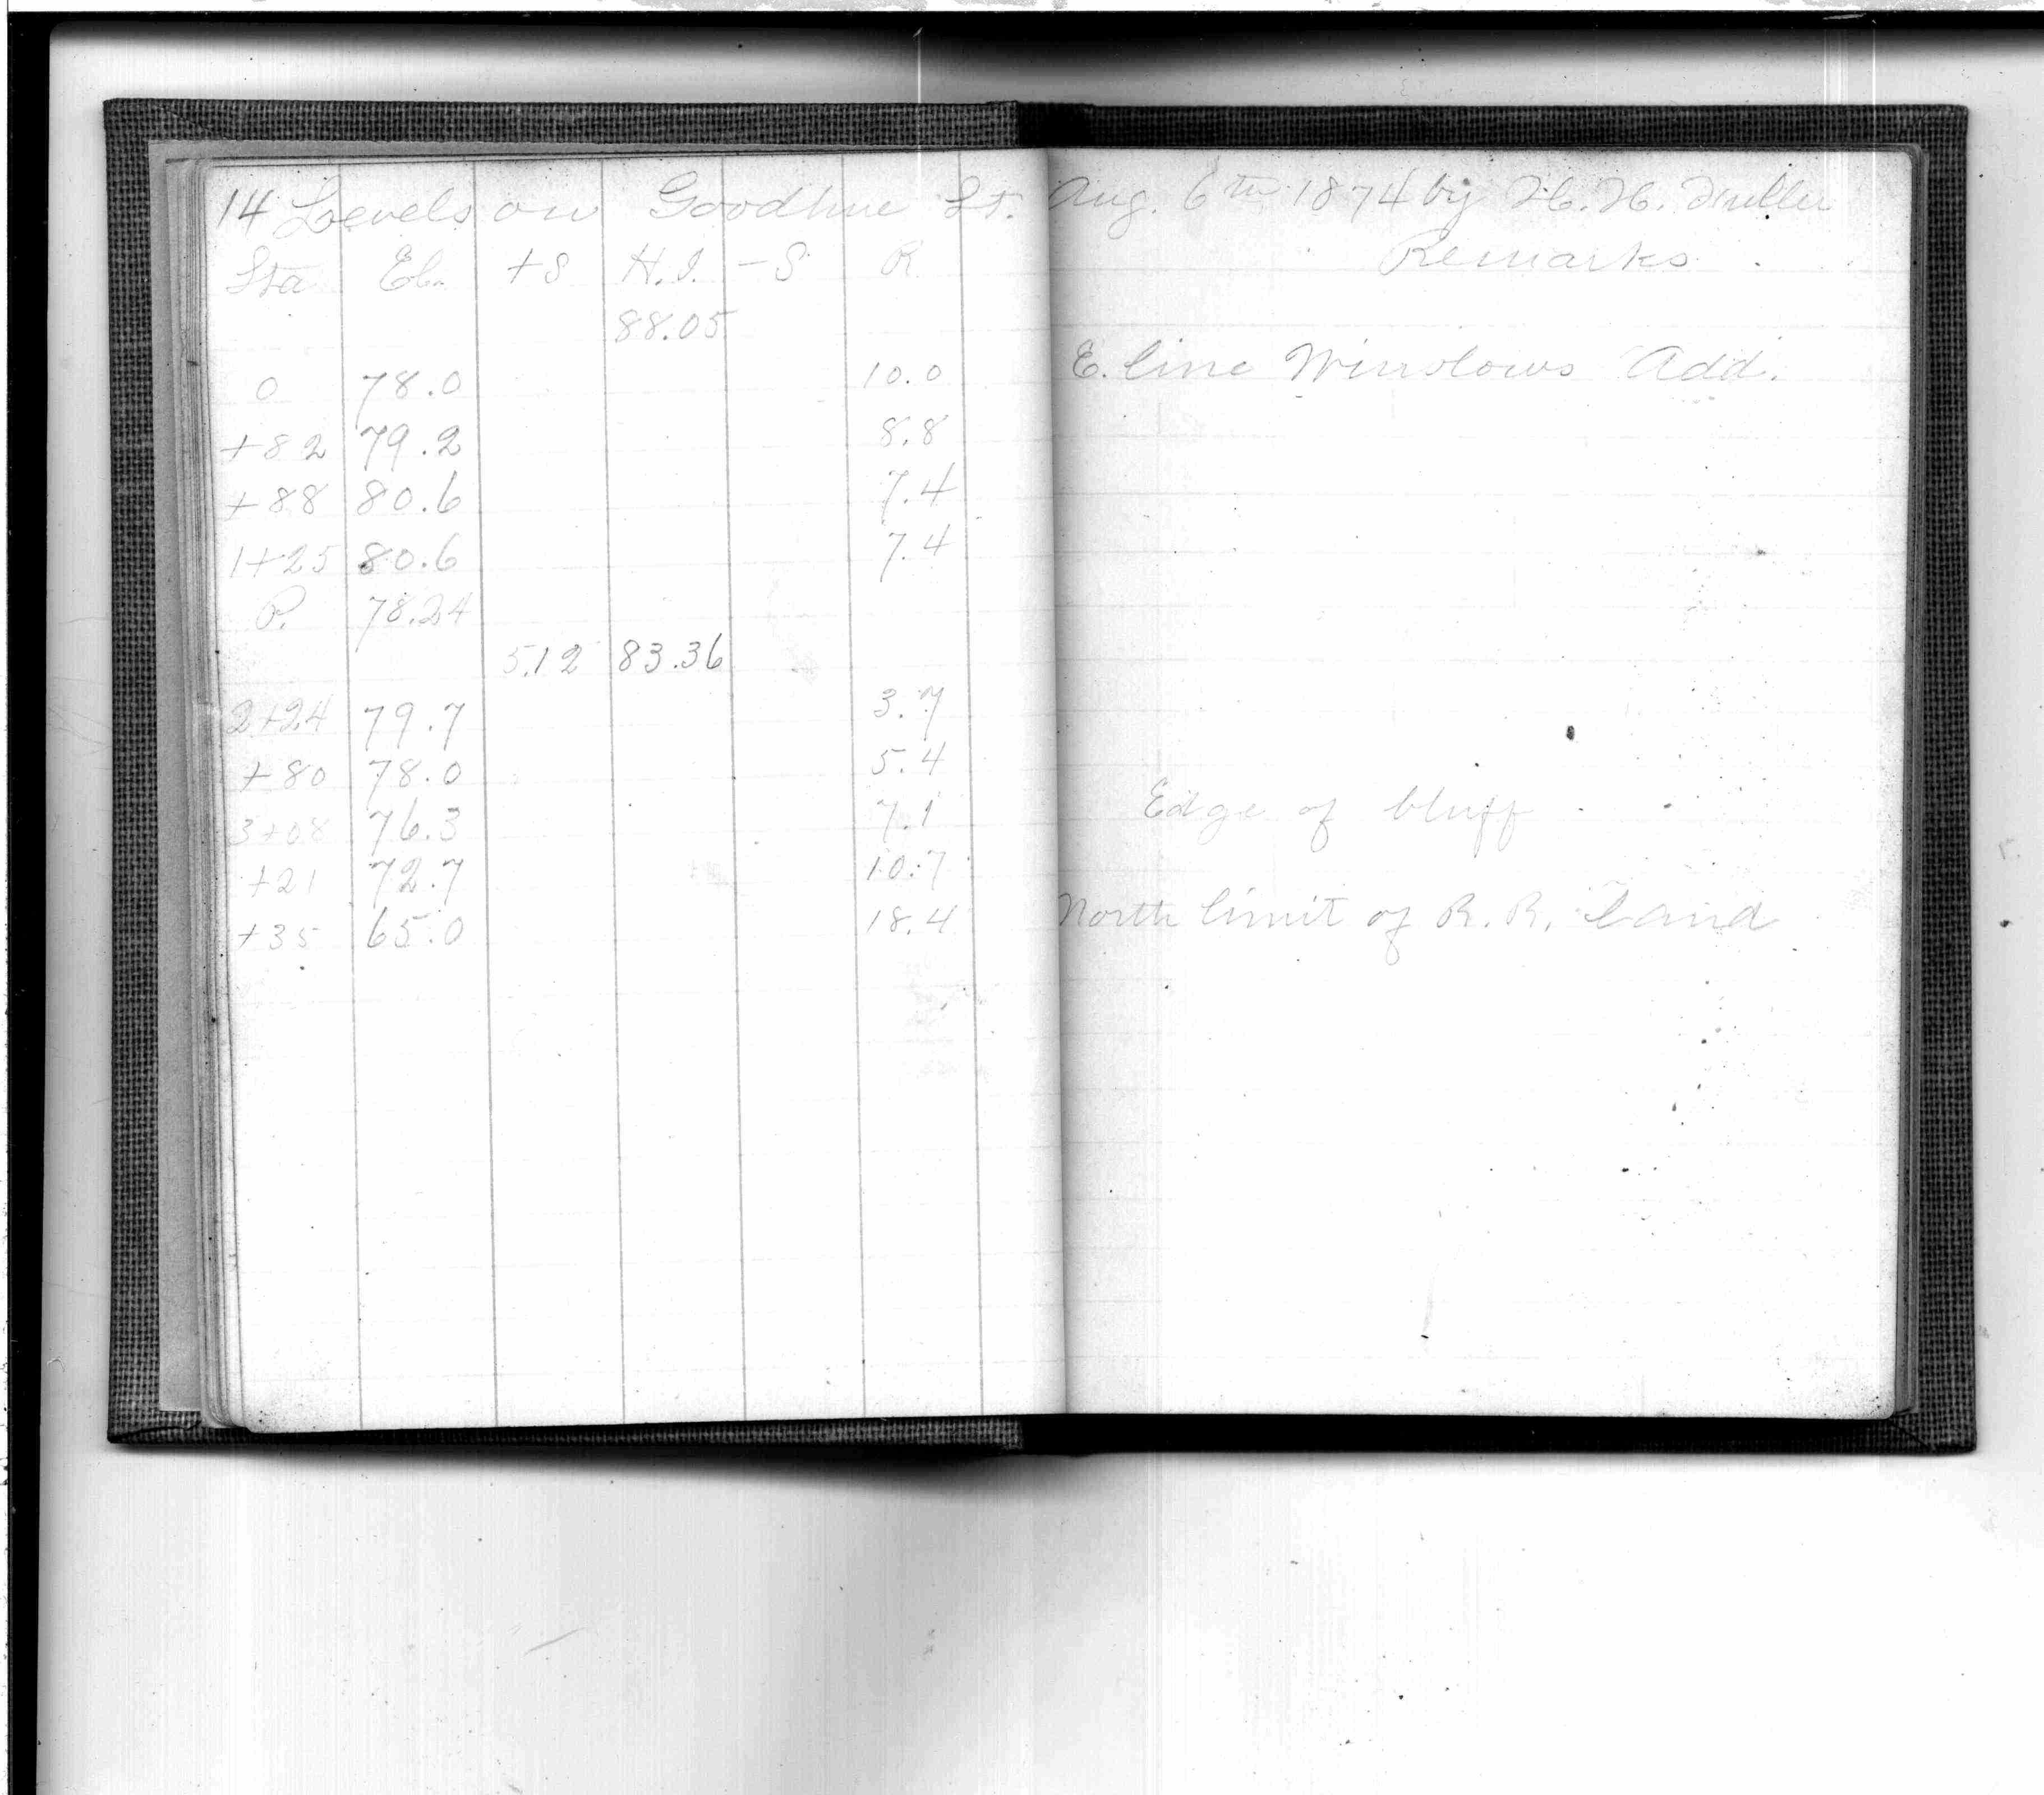 14 Levels on Goodhue St. Aug. 6th 1874 by H. H. Fuller
Sta El. +S H.I. -S R Remarks
88.05
0 78.0 10.0 E. line Winslows Add.
+82 79.2 8.8
+88 80.6 7.4
1+25 80.6 7.4
P. 78.24
5.12 83.36
2+24 79.7 3.7
+80 78.0 5.4
3+08 76.3 7.1 Edge of bluff
+21 72.7 10.7
+35 65.0 18.4 North limit of R. R. Land